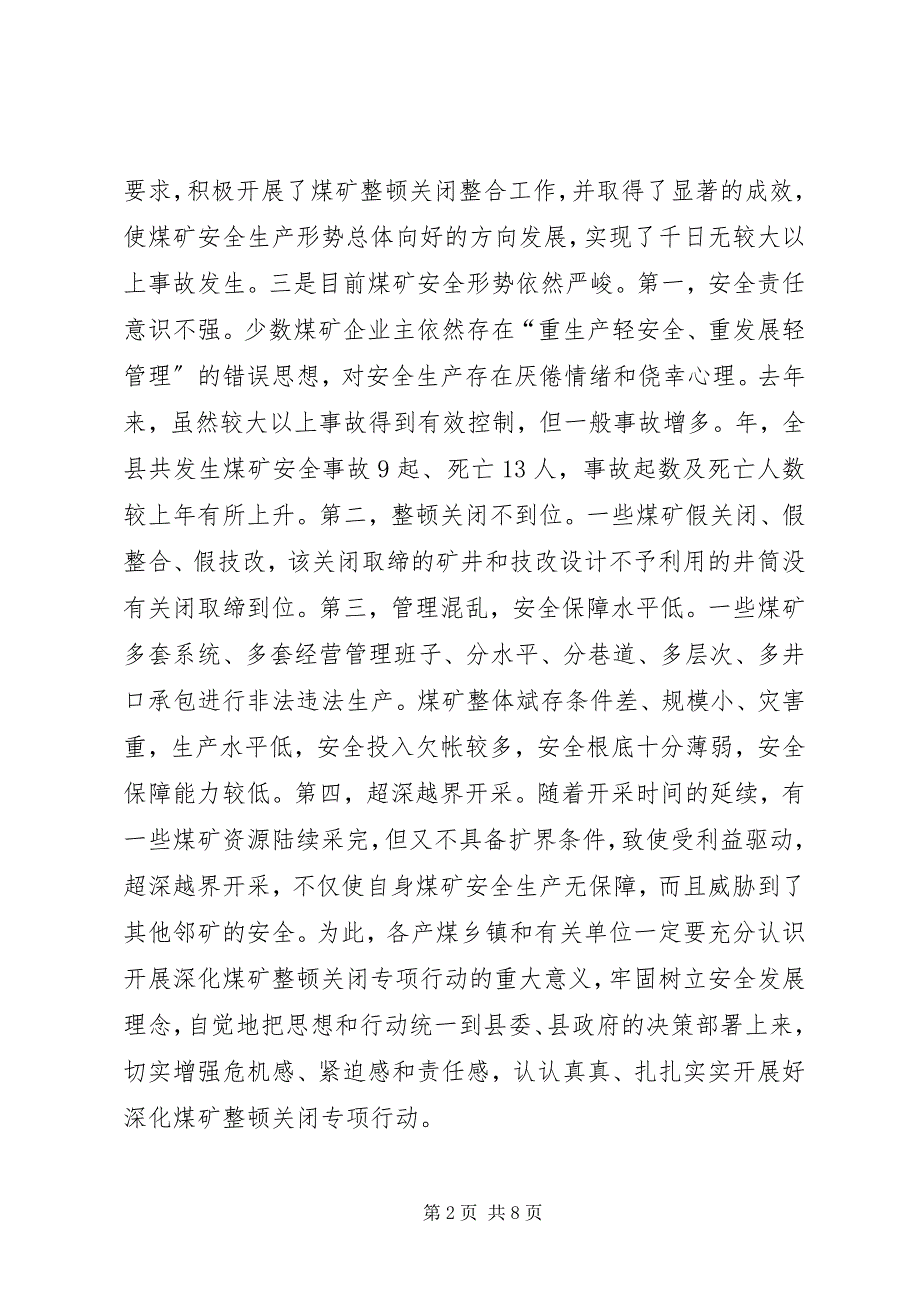 要求，积极开展了煤矿整顿关闭整合工作，并取得了显著的成效，
使煤矿安全生产形势总体向好的方向发展，实现了千日无较大以
上事故发生。三是目前煤矿安全形势依然严峻。第一，安全责任
意识不强。少数煤矿企业主依然存在“重生产轻安全、重发展轻
管理〞的错误思想，对安全生产存在厌倦情绪和侥幸心理。去年
来，虽然较大以上事故得到有效控制，但一般事故增多。年，全
县共发生煤矿安全事故 9 起、死亡 13 人，事故起数及死亡人数
较上年有所上升。第二，整顿关闭不到位。一些煤矿假关闭、假
整合、假技改，该关闭取缔的矿井和技改设计不予利用的井筒没
有关闭取缔到位。第三，管理混乱，安全保障水平低。一些煤矿
多套系统、多套经营管理班子、分水平、分巷道、多层次、多井
口承包进行非法违法生产。煤矿整体斌存条件差、规模小、灾害
重，生产水平低，安全投入欠帐较多，安全根底十分薄弱，安全
保障能力较低。第四，超深越界开采。随着开采时间的延续，有
一些煤矿资源陆续采完，但又不具备扩界条件，致使受利益驱动，
超深越界开采，不仅使自身煤矿安全生产无保障，而且威胁到了
其他邻矿的安全。为此，各产煤乡镇和有关单位一定要充分认识
开展深化煤矿整顿关闭专项行动的重大意义，牢固树立安全发展
理念，自觉地把思想和行动统一到县委、县政府的决策部署上来，
切实增强危机感、紧迫感和责任感，认认真真、扎扎实实开展好
深化煤矿整顿关闭专项行动。
第 2 页 共 8 页